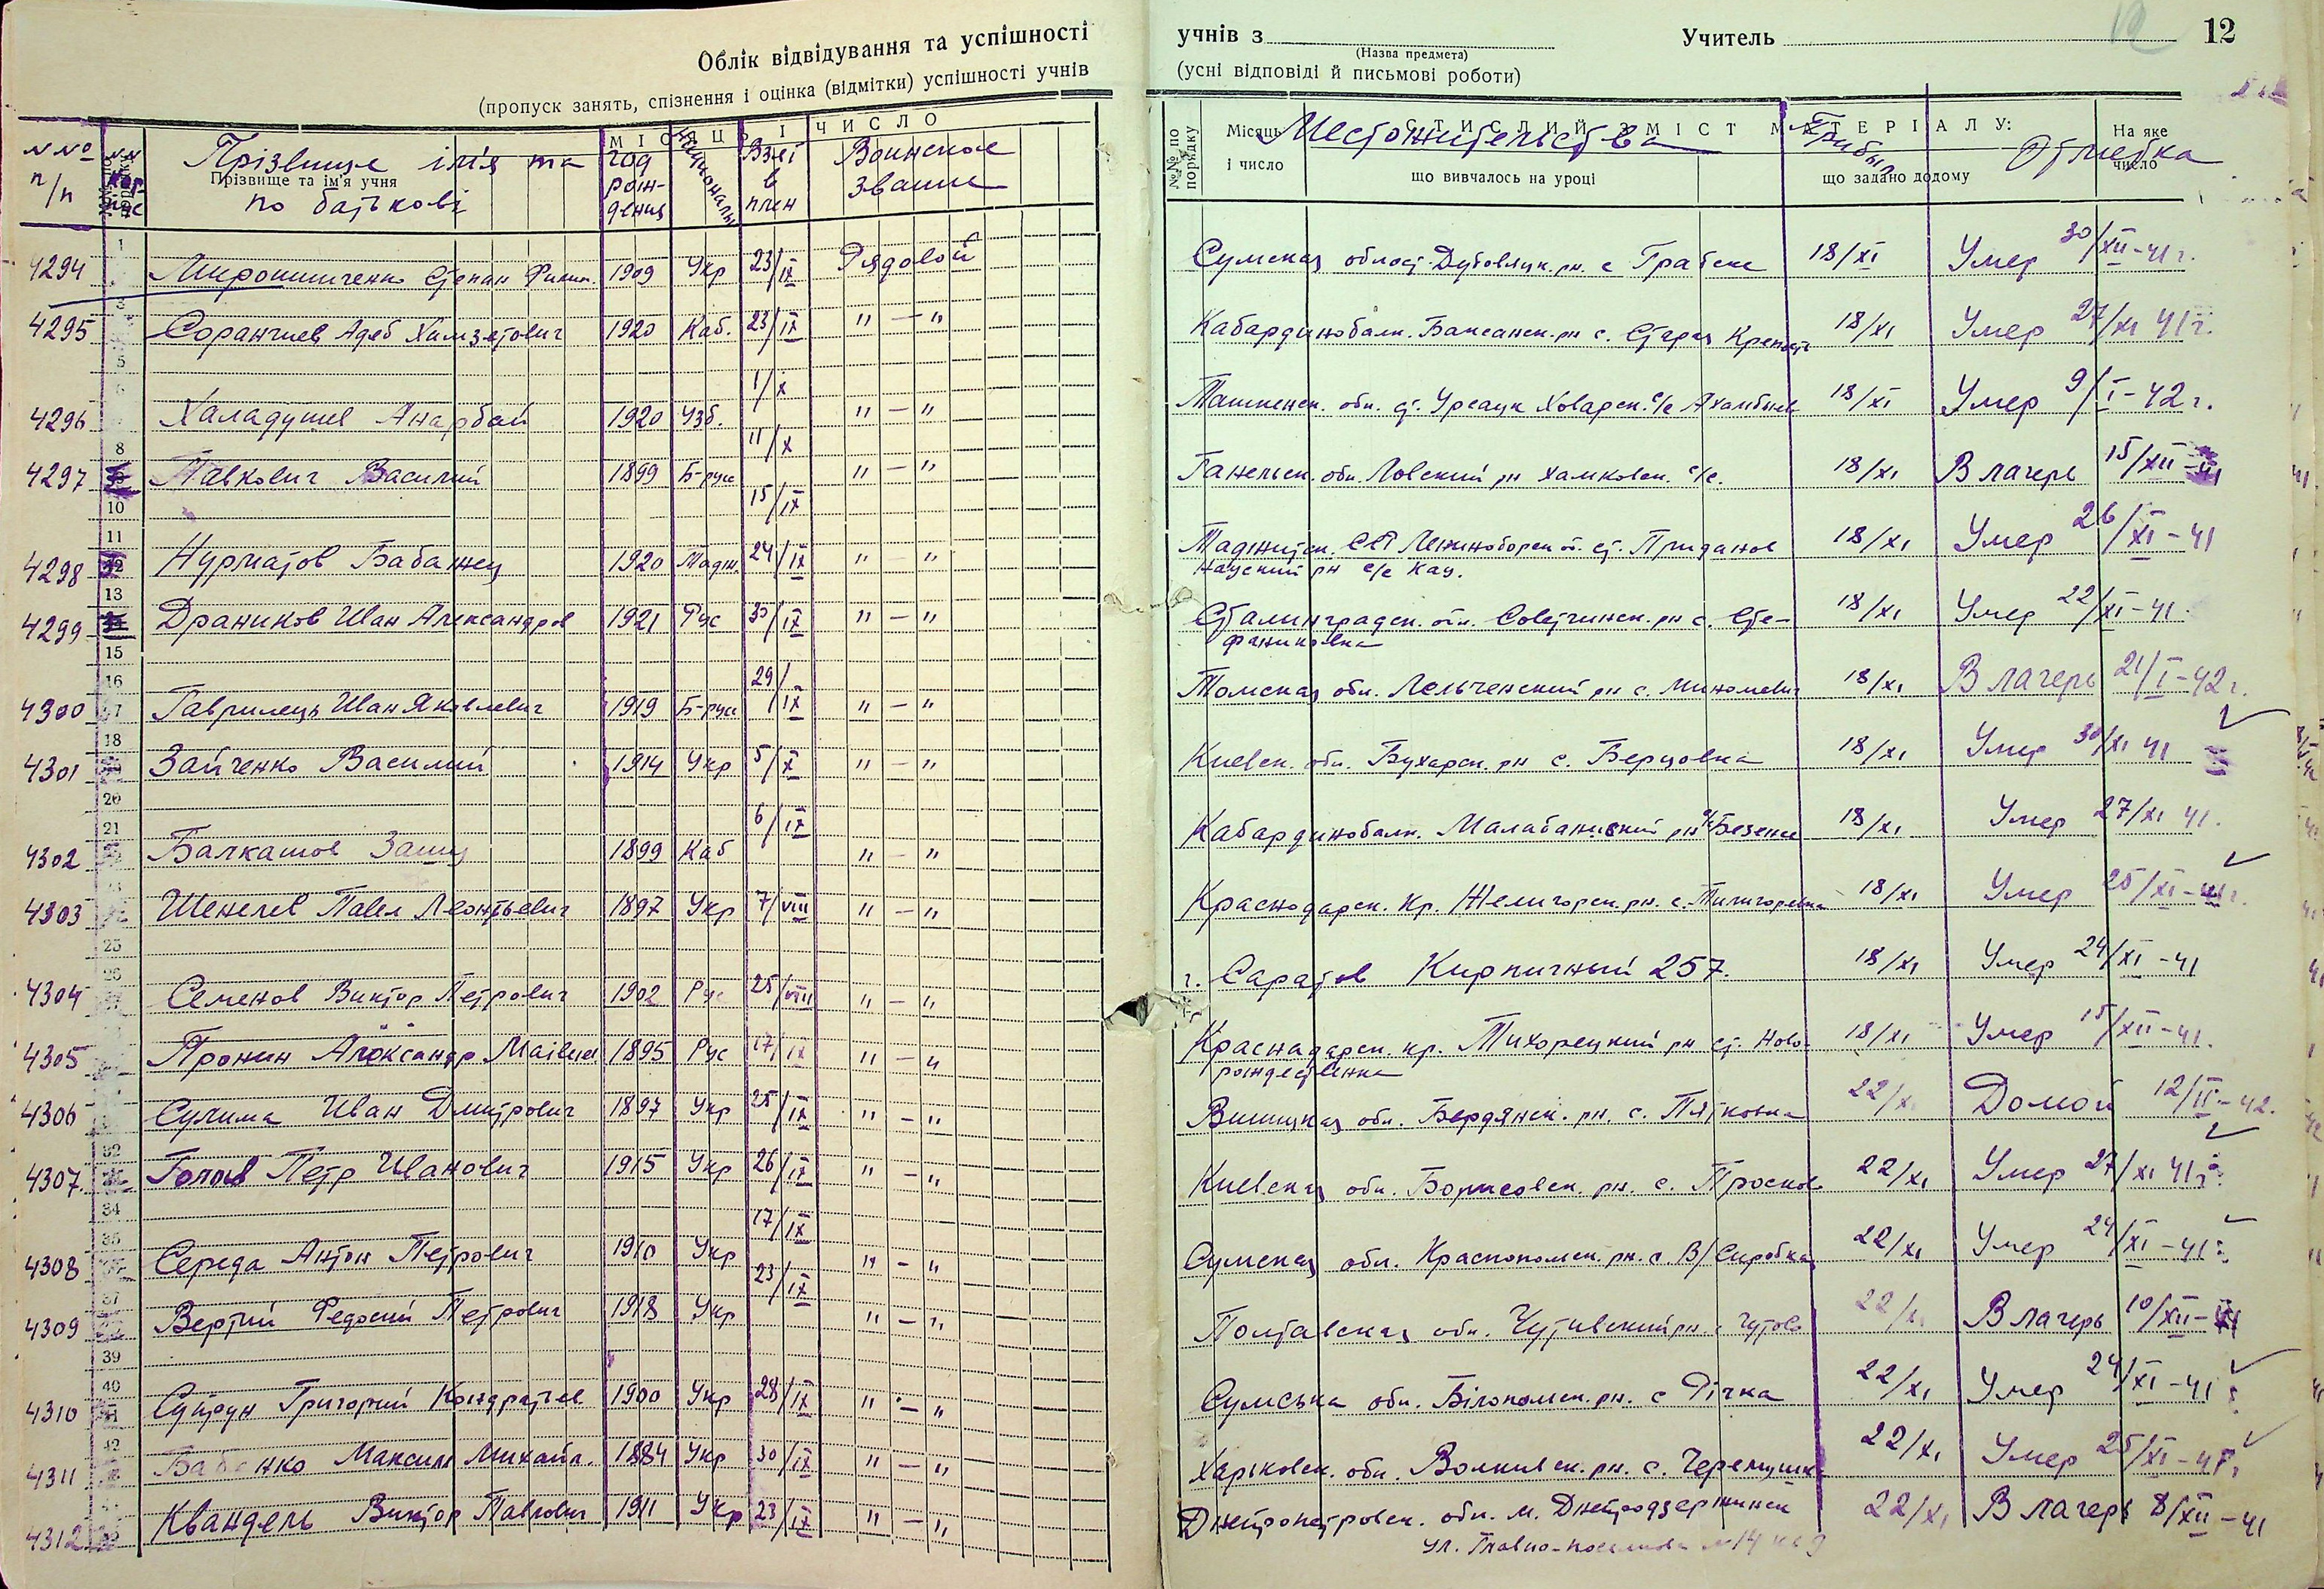 Облік відвідування та успішності
(пропуск занять, спізнення і оцінка (відмітки) успішності учнів
учнів з Учитель 12
(Назва предмета)
(усні відповіді й письмові роботи)
МІСЯЦЬ І ЧИСЛО
№№ п/п Прізвище імʼя та по батькові год рождения Националь Взят в плен Воинское звание
Прізвище та ім'я учня
№№ по порядку Місяць і число СТИСЛИЙ ЗМІСТ МАТЕРІАЛУ: що вивчалось на уроці що задано додому На яке число
Местожительства Прибыл Отметка
4294 Мирошниченко Степан 1909 Укр 23/IX Рядовой Сумская област Дубовяцк. рн. с Грабское 18/XI Умер 30/XII-41 г.
4295 Соранчиев Адеб Хамзетович 1920 Каб. 23/IX "—" Кабардинобалк. Баксанск. рн с. Старая Крепость 18/XI Умер 27/XI 41 г.
4296 Халадушев Анарбай 1920 Узб. 1/X "—" Ташкенск. обл. ст. Урсацк Ховарск. с/с 18/XI Умер 9/I-42 г.
4297 Павкович Василий 1899 Б-рус 11/X "—" Ловский рн Хамковск. с/с. 18/XI В лагерь 15/XII-41
15/IX
4298 Нурматов Бабажец 1920 Тадж. 24/IX "—" Таджитск. ССР Лениноборск об. ст. Приданов 18/XI Умер 26/XI-41
Науский рн с/с Кац.
4299 Драников Иван Александров 1921 Рус 30/IX "—" Сталинградск. обл. Советчинск. рн с. Сте-
фаниковка 18/XI Умер 22/XI-41.
4300 Гаврилець Иван Яковлевич 1919 Б-русс 29/IX "—" Томская обл. Лельченский рн с. Миломевич 18/XI В лагерь 21/I-42 г.
4301 Зайченко Василий 1914 Укр 5/X "—" Киевск. обл. Бухарск. рн с. Берцовка 18/XI Умер 30/XI 41
4302 Балкашов 1899 Каб 6/IX "—" Кабардинобалк. Малабаниский рн Безенги 18/XI Умер 27/XI 41.
4303 Шепелев Павел Леонтьевич 1897 Укр 7/VIII "—" Краснодарск. кр. Желигорск. рн. с. Пилигоревка 18/XI Умер 25/XI-41 г.
4304 Семенов Виктор Петрович 1902 Рус 25/VIII "—" г. Саратов Кирпичный 257. 18/XI Умер 24/XI-41
4305 Пронин Александр Матвеев 1895 Рус 17/IX "—" Краснадарск. кр. Тихорецкий рн ст. Ново-
рождественка 18/XI Умер 15/XII-41.
4306 Сулима Иван Дмитрович 1897 Укр 25/IX "—" Винницкая обл. Бердянск. рн. с. Пятковка 22/X Домой 12/II-42.
4307. Голов Петр Иванович 1915 Укр 26/IX "—" Киевская обл. Борисовск. рн. с. Просков 22/XI Умер 27/XI 41 г.
4308 Середа Антон Петрович 1910 Укр 17/IX "—" Сумская обл. Краснополск. рн. с В/Сыробка 22/XI Умер 24/XI-41
4309 Вертий Федосий Петрович 1918 Укр 23/IX "—" Полтавская обл. Чутивский рн. с Чутово 22/XI В лагерь 10/XII-41
4310 Супрун Григорий Кондратьев 1900 Укр 28/IX "—" Сумська обл. Білополск. рн. с Річка 22/XI Умер 24/XI-41
4311 Бабенко Максим Михайл. 1884 Укр 30/IX "—" Харьковск. обл. Волкивск. рн. с. Черемушк 22/XI Умер 25/XI-41
4312 Квандель Виктор Павлович 1911 Укр 23/IX "—" Днепропетровск. обл. м. Днепродзержинск 22/XI В лагерь 8/XII-41
ул. №14 кв 9